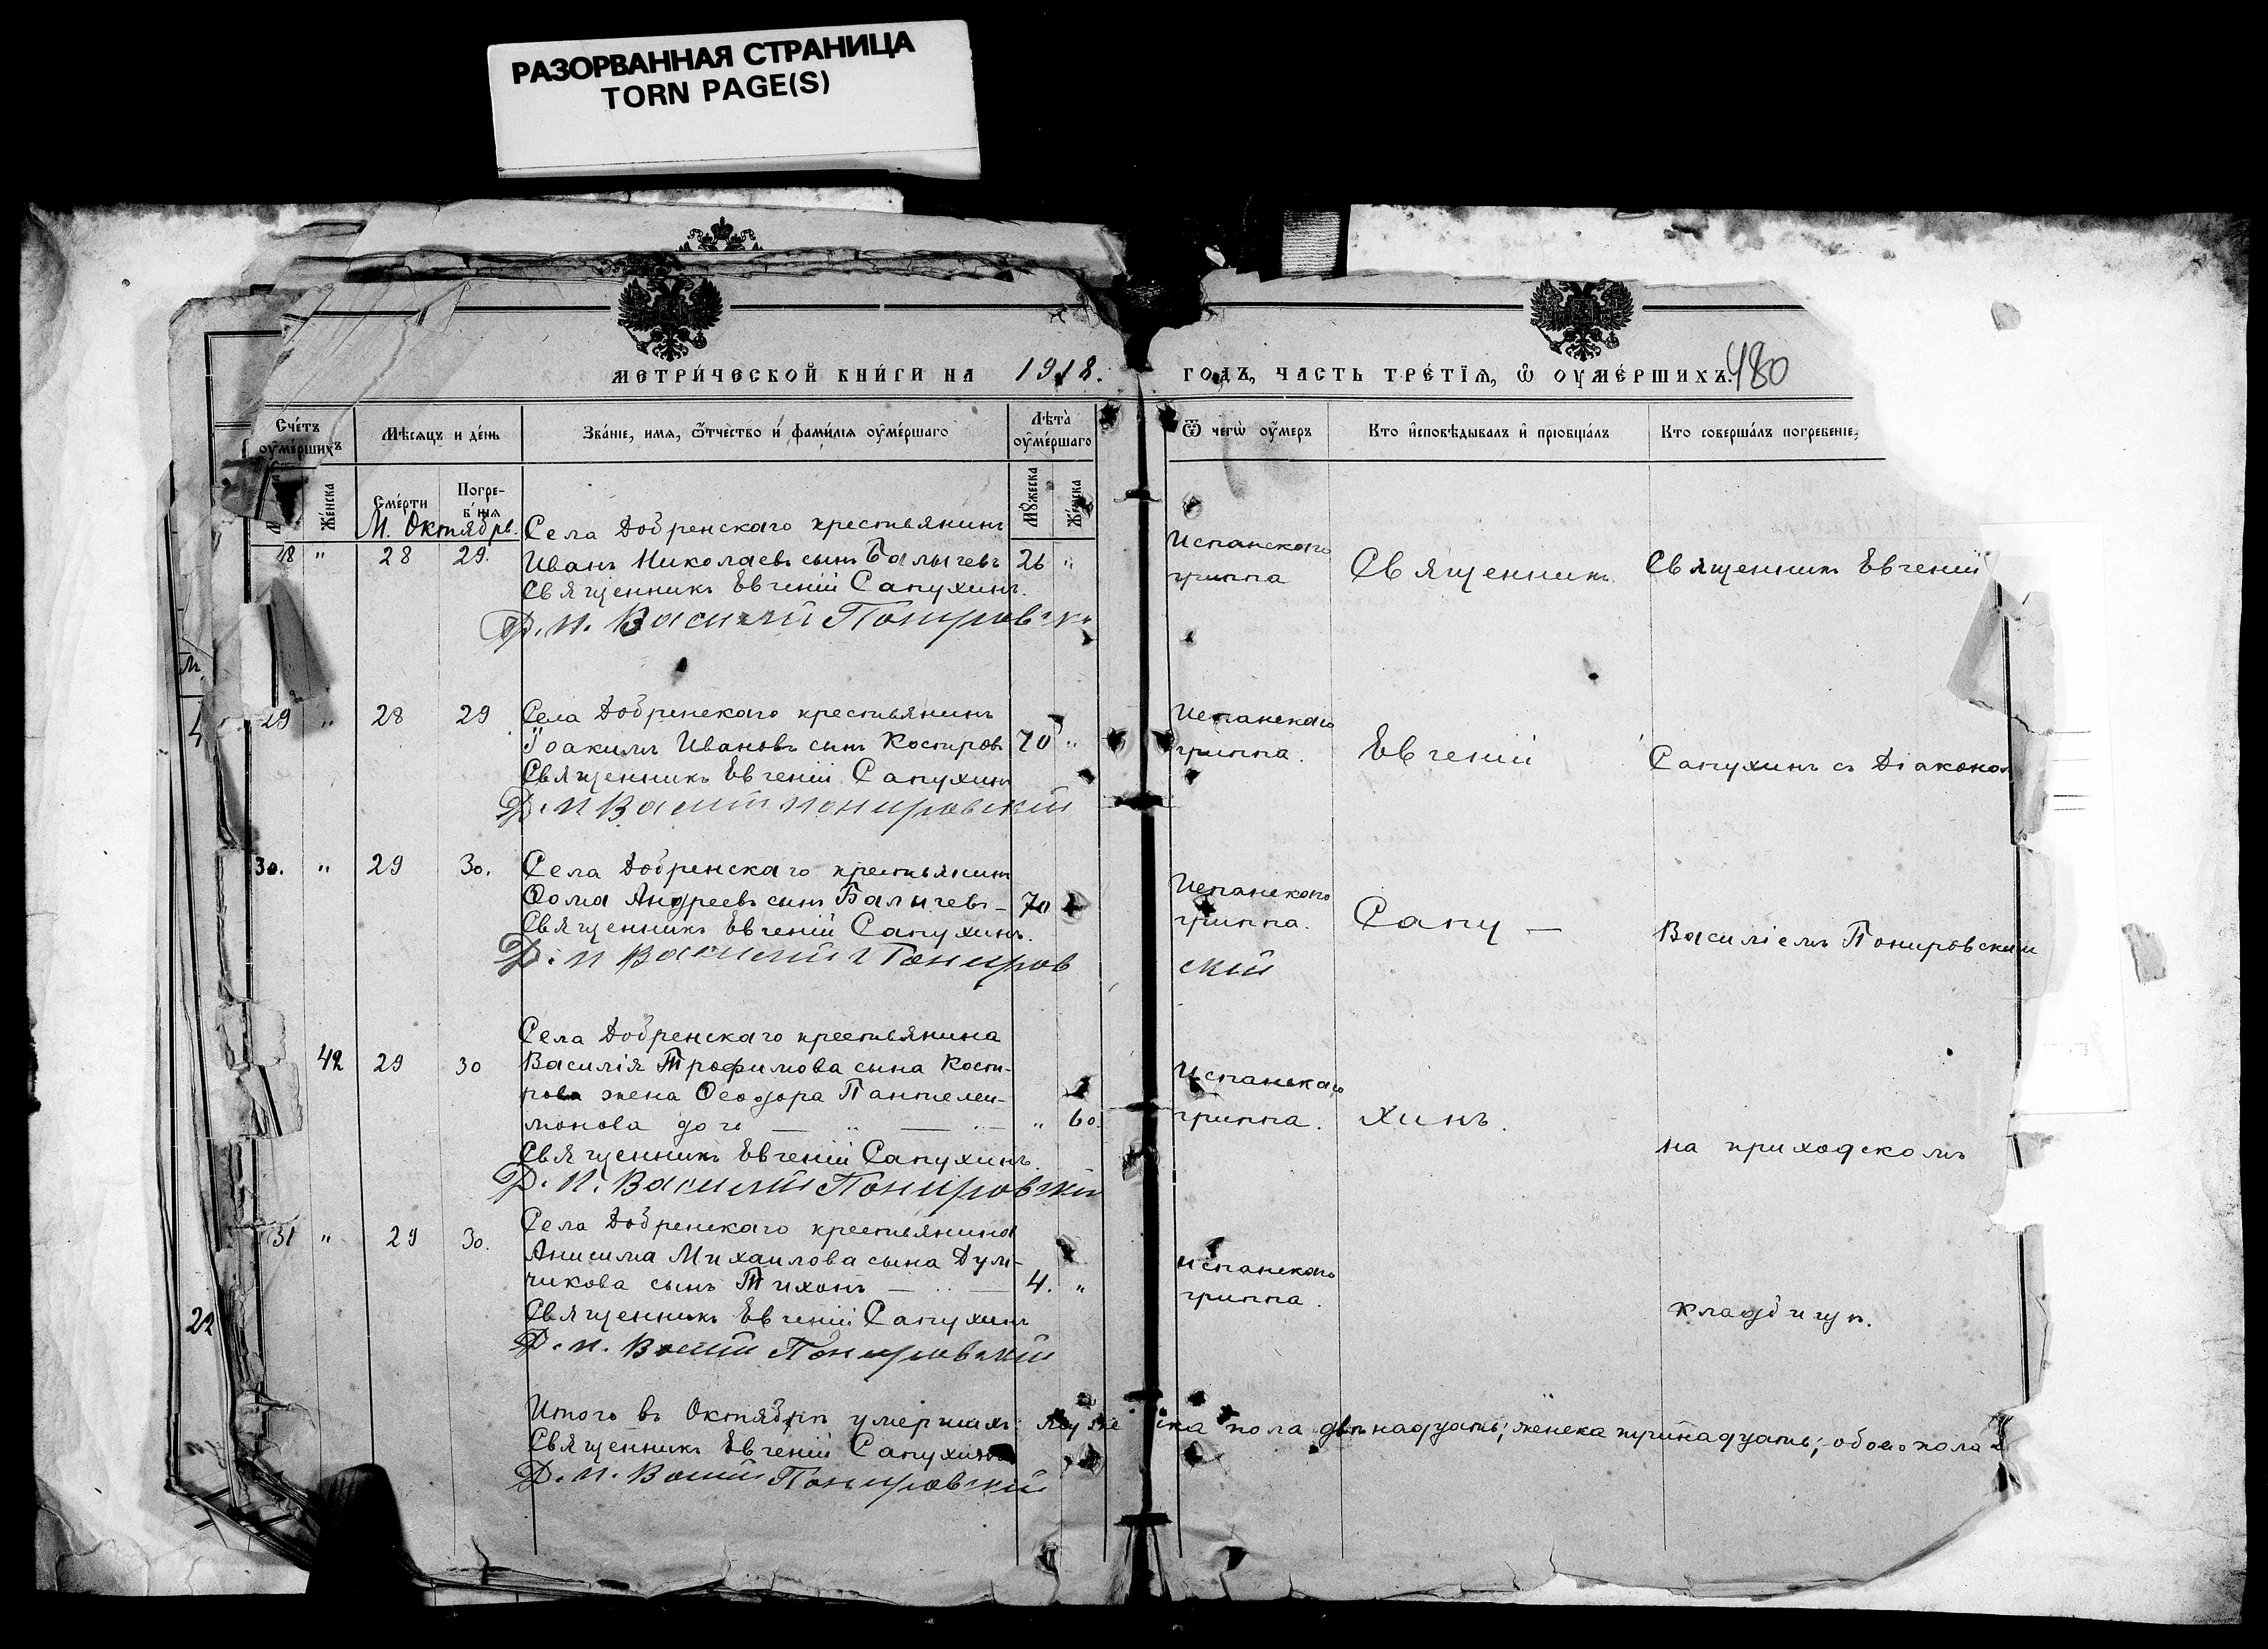 РАЗОРВАННАЯ СТРАНИЦА
TORN PAGE(S)
МЕТРИ́ЧЕСКОЙ КНИ́ГИ НА 1918.
ГОДЪ, ЧАСТЬ ТРЕ́ТЇѦ, Ѿ ОУМЕ́РШИХЪ. 480
Сче́тъ оуме́ршихъ
Мѣсяцъ и де́нь
Зва́нїе, имя, о́тчество и́ фами́лїя оуме́ршаго
Лѣта̀ оуме́ршаго
Ѿ чегѡ̀ оу́меръ
Кто и҆сповѣ́дывалъ и҆ прїобща́лъ
Кто соверша́лъ погребе́нїе,
Же́нска
Сме́рти
Погре-
б нїя
Мꙋ́жеска
Же́нска
М. Октябрь.
Села Добренскаго крестьянинъ
28 " 28 29. Иванъ Николаевъ сынъ Балычевъ 26 "
Священникъ Евгеній Сапухинъ.
Д. П. Василій Понировскі
Испанскаго
гриппа
Священникъ
Священникъ Евгеній
29 " 28 29 Села Добренскаго крестьянинъ
Іоакимъ Ивановъ сынъ Костровъ 70 "
Священникъ Евгеній Сапухинъ
Д. П Василій Понировскій
Испанскаго
гриппа.
Евгеній
Сапухинъ съ Діакономъ
30. " 29 30. Села Добренскаго крестьянинъ
Ѳома Андреевъ сынъ Балычевъ – 70
Священникъ Евгеній Сапухинъ.
Д. П Василій Пониров
Испанскаго
гриппа.
скій
Сапу –
Василіемъ Понировскимъ
Села Добренскаго крестьянина
42 29 30 Василія Трофимова сына Кост-
рова жена Ѳеодора Пантелеи-
монова дочь — " — " — " 60.
Священникъ Евгеній Сапухинъ.
Д. П. Василій Понировскій
Испанскаго
гриппа.
хинъ.
на приходскомъ
Села Добренскаго крестьянина
31 " 29 30. Анисима Михаилова сына Дум-
чикова сынъ Тихонъ — .. — 4. "
Священникъ Евгеній Сапухинъ
Д. П. Василій Понировскій
Испанскаго
гриппа.
кладбищѣ.
22
Итого въ Октябрѣ умершихъ: мужеска пола двѣнадцать; женска тринадцать; обоего пола 2
Священникъ Евгеній Сапухинъ
Д. П. Василій Понировскій